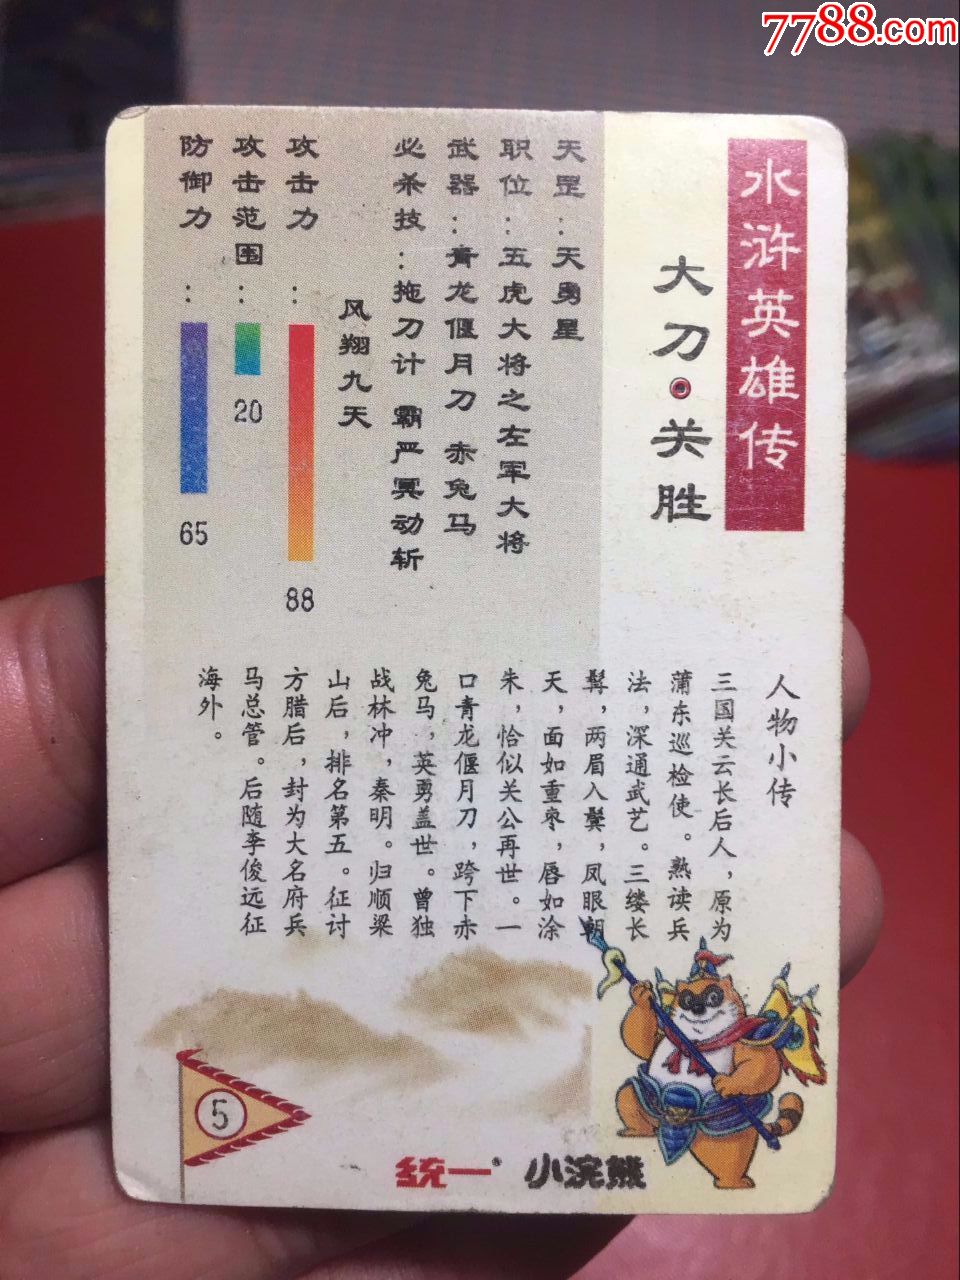 7788.com
水浒英雄传
大刀·关胜
天罡：天勇星
职位：五虎大将之左军大将
武器：青龙偃月刀 赤兔马
必杀技：拖刀计 霸严冥动斩
风翔九天
攻击力：88
攻击范围：20
防御力：65
人物小传
三国关云长后人，原为
蒲东巡检使。熟读兵
法，深通武艺。三缕长
髯，两眉入鬓，凤眼朝
天，面如重枣，唇如涂
朱，恰似关公再世。一
口青龙偃月刀，跨下赤
兔马，英勇盖世。曾独
战林冲，秦明。归顺梁
山后，排名第五。征讨
方腊后，封为大名府兵
马总管。后随李俊远征
海外。
5
统一 小浣熊